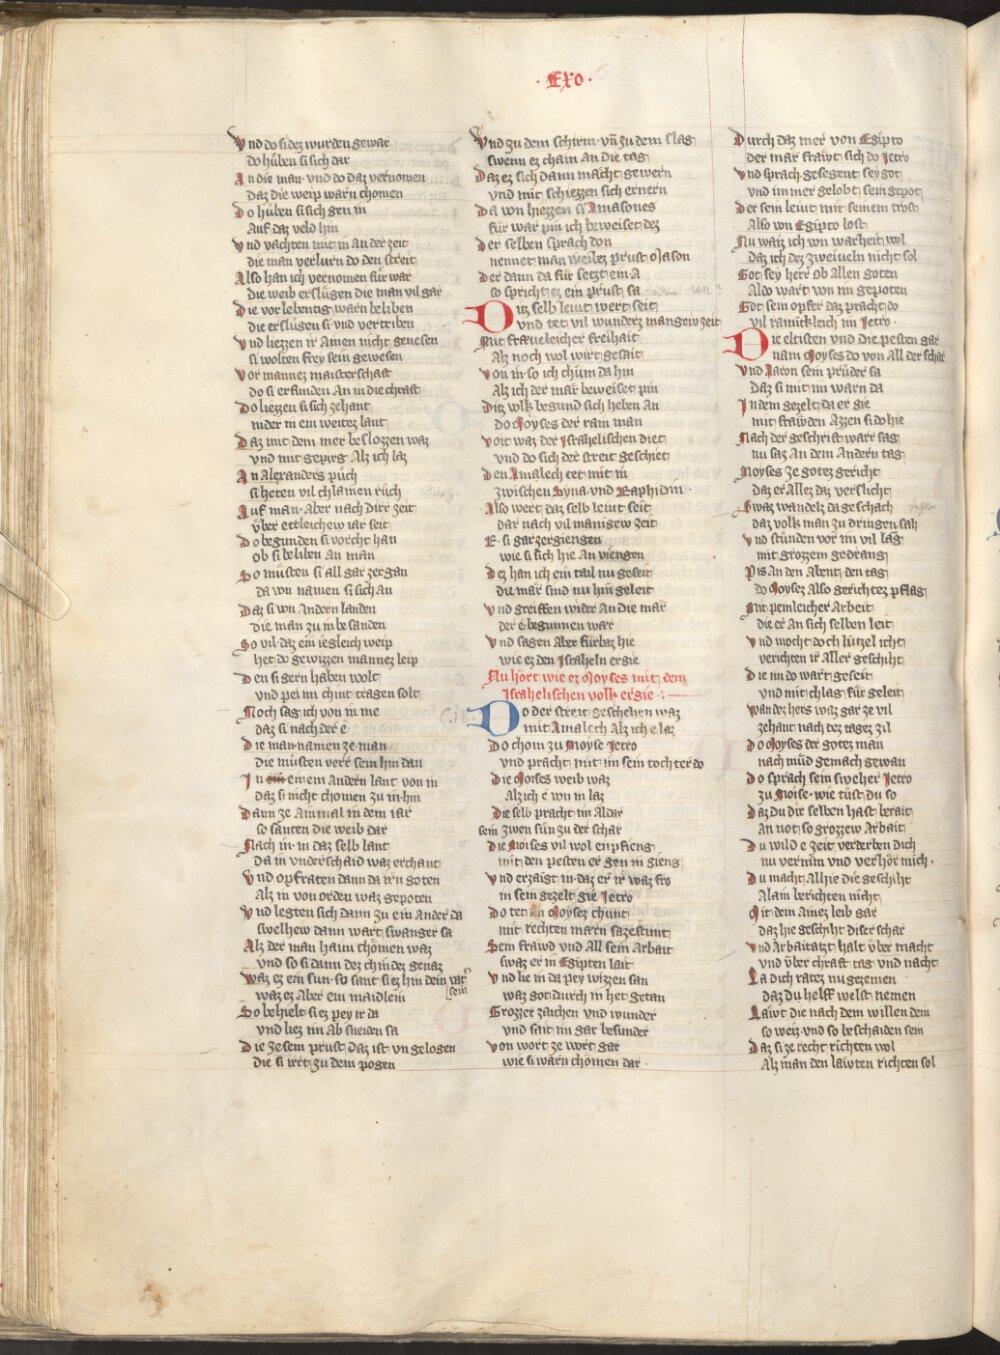 · Exo ·
Vnd do si dez wurden gewar
do hůben si sich dar
An die man · vnd do daz vernomen
daz die weip warn chomen
Do hůben si sich gen in
Auf daz veld hin
Vnd vachten mit in an der zeit
die man verlurn do den streit
Also han ich vernomen für war
die weib erslůgen die man vil gar
Die vor lebentig warn beliben
die erslůgen si vnd vertriben
Vnd liezzen ir Ainen nicht genesen
si wolten frey sein gewesen
Vor mannez maisterschaft
do si erfunden An in die chraft
Do liezzen si sich zehant
nider in ein weitez lant
Daz mit dem mer beslozzen waz
vnd mit gepirg Alz ich laz
An Alexanders půch
si heten vil chlainen růch
Auf man · Aber nach dirr zeit
vber ettleichew iar seit
Do begunden si vorcht han
ob si beliben An man
So müsten si all gar zergan
da von namen si sich an
Daz si von Andern landen
die man zu in besanden
So vil daz ein iegleich weip
het do gewizzen mannez leip
Den si gern haben wolt
vnd pei im chint tragen solt
Noch sag ich von in me
daz si nach der e
Die man namen ze man
die müsten verr sein hin dan
In einem Andern lant von in
daz si nicht chomen zu in hin
Dann ze Ainmal in dem iar
so santen die weib dar
Nach in · in daz selb lant
da in vnderschaid waz erchant
Vnd opfraten dann da irn goten
Alz in von orden waz gepoten
Vnd legten sich dann zu ein Ander da
swelhew dann wart swanger sa
Alz der man haim chomen waz
vnd so si dann dez chindez genaz
Waz ez ein sun · so sant si ez hin dem vater
sein
waz ez Aber ein maidlein
So behielt si ez pey ir da
vnd liez im Ab sneiden sa
Die zesem prust daz ist vn gelogen
die si irret zu dem pogen
Vnd zu dem schirm · vn̄ zu dem slag
swenn ez chain An die tag
Daz ez sich dann macht gewern
vnd mit schiezzen sich ernern
Da von hiezzen si Amasones
für war pin ich beweiset dez
Der selben sprach don
nennet man weibez prust Mason
Der dann da für setzt ein A
so spricht ez ein prust sa
Ditz selb leiut wert seit
vnd tet vil wunderz mangew zeit
Mit fraeueleicher freihait
Alz noch vol wirt gesait
Von in · so ich chům da hin
Alz ich der mär beweiset pin
Ditz volk begund sich heben An
do Moyses der rain man
Voit waz der Israhelischen diet
vnd do sich der streit geschiet
Den Amalech tet mit in
zwischen Syna · vnd Raphidin ·
Also wert daz selb leiut seit
dar nach vil manigew zeit
E · si gar zergiengen
wie si sich hie An viengen
Dez han ich ein tail nu geseit
die mär sind nu hin geleit
Vnd greiffen wider An die mär
der e begunnen wär
Vnd sagen Aber fürbaz hie
wie ez den Israheln ergie
Nu hört wie ez Moyses mit dem
Israhelischen volk ergie ·
Do der streit geschehen waz
mit Amalech Alz ich e laz
Do chom zu Moyse Jetro
vnd pracht mit im sein tochter do
Die Moises weib waz
Alz ich e von in laz
Die selb pracht im Aldar
sein zwen sün zu der schar
Die Moises vil wol enpfieng
mit den pesten er gen in gieng
Vnd erzaigt in · daz er ir waz fro
in sein gezelt gie Jetro
Do tet im Moysez chunt
mit rechten märn sazestunt
Sein frawd vnd All sein Arbait
swaz er in Egipten lait
Vnd lie in da pey wizzen san
waz got durch in het getan
Grozzer zaichen vnd wunder
vnd sait im gar besunder
Von wort ze wort gar
wie si wärn chomen dar ·
Durch daz mer von Egipto
der mär frawt sich do Jetro
Vnd sprach · gesegent sey got
vnd immer gelobt sein gepot
Der sein leiut mit seinem trost
Also von Egipto lost
Nu waiz ich von warheit wol
daz ich dez zweiueln nicht sol
Got sey herr ob allen goten
Aldo wart von im gepoten
Got sein opfer daz pracht do
vil rainickleich im Jetro ·
Die eltisten vnd die pesten gar
nam Moyses do von All der schar
Vnd Aaron sein prüder sa
daz si mit im warn da
In dem gezelt da er gie
mit frawden Azzen si do hie
Nach der geschrift warr sag
nu saz An dem Andern tag
Moyses ze gotez gericht
daz er Allez daz verslicht
Swaz wandelz da geschach
daz volk man zu dringen sah
Vnd stünden vor im vil lag
mit grozzem gedrang
Pis An den Abent den tag
do Moysez Also gerichtez pflag
Mit peinleicher Arbeit
die er An sich selben leit
Vnd mocht doch lützel icht
verichten ir Aller geschiht
Die im do wart geseit
vnd mit chlag für geleit
Wan dez hers waz gar ze vil
zehant nach dez tagez zil
Do Moyses der gotez man
nach müd gemach gewan
Do sprach sein sweher Jetro
zu Moise · wie tüst du so
Daz du dir selben hast berait
An not so grozzew Arbait
Du wild e zeit verderben dich
nu vernim vnd verhör mich ·
Du macht Alhie die geschiht
Alain berichten nicht
Mit dein Ainez leib gar
daz hie geschiht diser schar
Vnd Arbaitatzt halt vber macht
vnd vber chraft tag vnd nacht
La dich ratez nu gezemen
daz du helff welst nemen
Läwt die nach dem willen dein
so weiz · vnd so beschaiden sein
Daz si ze recht richten wol
Alz man den läwten richten sol